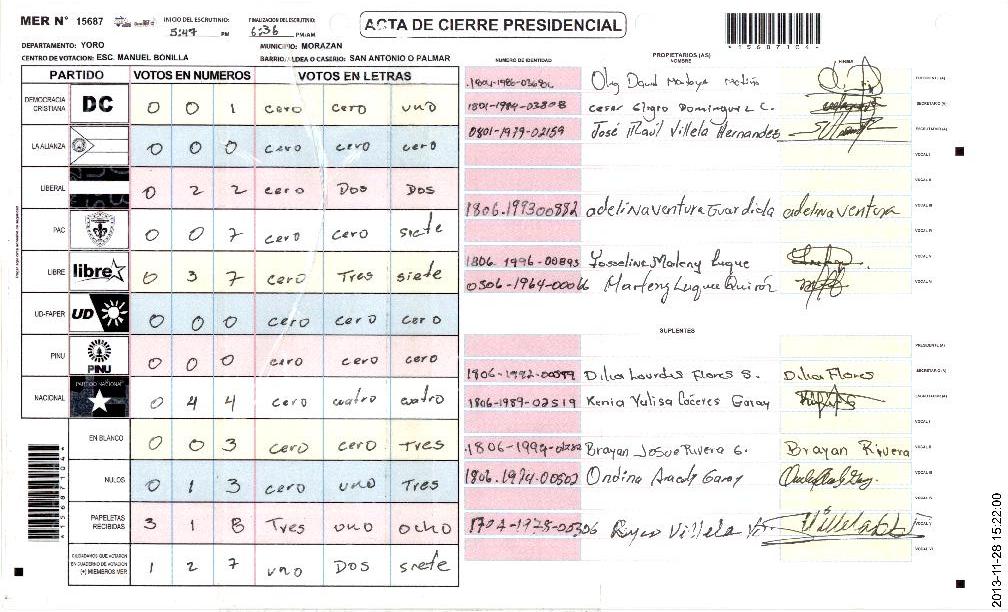 MER N° 15687
INICIO DEL ESCRUTINIO: 5:47 PM
FINALIZACION DEL ESCRUTINIO: 6:36 PM/AM
ACTA DE CIERRE PRESIDENCIAL
*15687104*
DEPARTAMENTO: YORO
MUNICIPIO: MORAZAN
CENTRO DE VOTACION: ESC. MANUEL BONILLA
BARRIO/ALDEA O CASERIO: SAN ANTONIO O PALMAR
PARTIDO VOTOS EN NUMEROS VOTOS EN LETRAS
DEMOCRACIA CRISTIANA DC 0 0 1 cero cero uno
LA ALIANZA 0 0 0 cero cero cero
LIBERAL 0 2 2 cero Dos Dos
PAC 0 0 7 cero cero siete
LIBRE libre 0 3 7 cero Tres siete
UD-FAPER UD 0 0 0 cero cero cero
PINU PINU 0 0 0 cero cero cero
NACIONAL PARTIDO NACIONAL 0 4 4 cero cuatro cuatro
EN BLANCO 0 0 3 cero cero Tres
NULOS 0 1 3 cero uno Tres
PAPELETAS RECIBIDAS 3 1 8 Tres uno ocho
CIUDADANOS QUE VOTARON EN CUADERNO DE VOTACION (+) MIEMBROS MER 1 2 7 uno DOS siete
*15687104*
NUMERO DE IDENTIDAD
PROPIETARIOS (AS)
NOMBRE
FIRMA
PRESIDENTE (A)
1801-1984-03808 Cesar Eligio Dominguez C. SECRETARIO (A)
0801-1979-02159 José Raúl Villela Hernandez ESCRUTADOR (A)
VOCAL I
1806.199300882 adelina ventura Guardiola adelina ventura VOCAL III
VOCAL IV
1806 1996-00893 Yosseline Marleny Luque VOCAL V
0506-1964-00066 Marleny Luque Quirós VOCAL VI
SUPLENTES
PRESIDENTE (A)
1806-1992-00599 Dilia Lourdes Flores S. Dilia Flores SECRETARIO (A)
1806-1989-02519 Kenia Yulisa Cáceres Garay ESCRUTADOR (A)
VOCAL I
Brayan Josue Rivera G. Brayan Rivera VOCAL II
1806.1974-00502 Ondina Aracely Garay VOCAL III
VOCAL IV
1704-1978-00306 Villela VOCAL V
VOCAL VI
2013-11-28 15:22:00